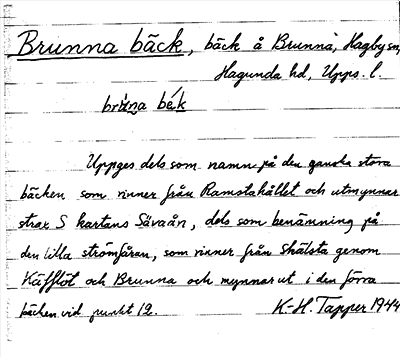 Brunna bäck, bäck å Brunna, Hagby sn,
Hagunda hd, Upps. l.
brùna bék
Uppges dels som namn på den ganska stora
bäcken som rinner från Ramstahållet och utmynnar
strax S kartans Sävaån, dels som benämning på
den lilla strömfåran, som rinner från Skälsta genom
Käfflöt och Brunna och mynnar ut i den förra
bäcken vid punkt 12. K-H. Tapper 1944